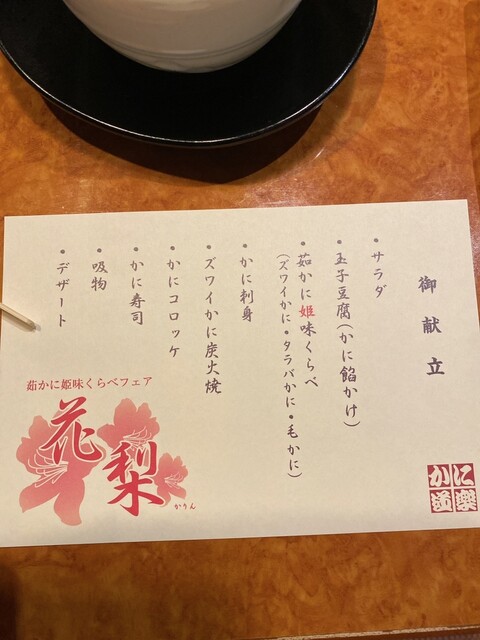 御献立
・サラダ
・玉子豆腐(かに餡かけ)
・茹かに姫味くらべ
(ズワイかに・タラバかに・毛かに)
・かに刺身
・ズワイかに炭火焼
・かにコロッケ
・かに寿司
・吸物
・デザート
茹かに姫味くらべフェア
花梨
かりん
かに道楽